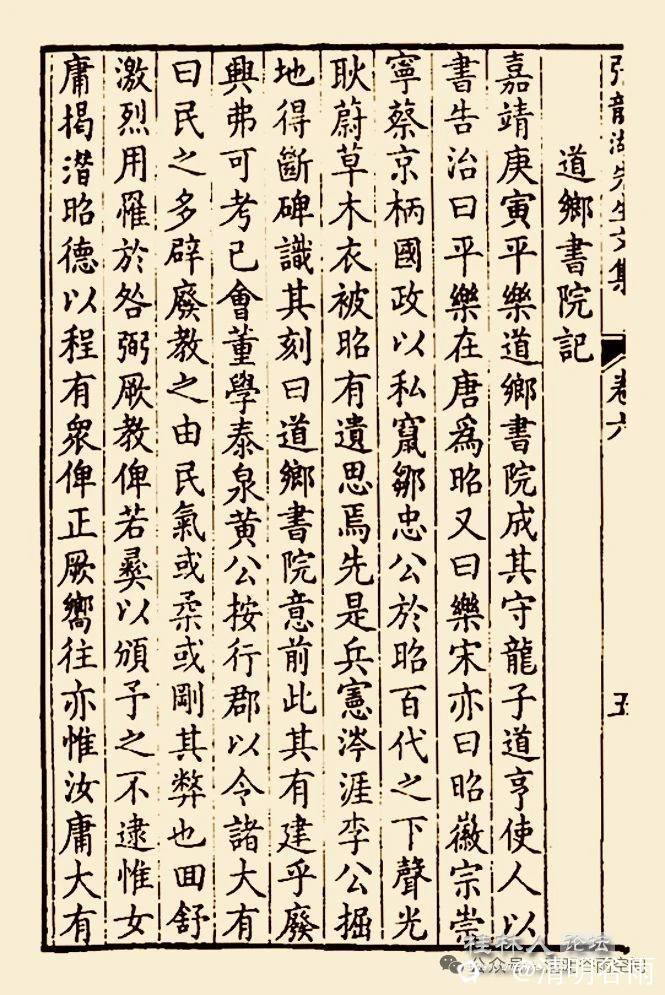 張龍湖先生文集
卷六
五
道鄉書院記
嘉靖庚寅平樂道鄉書院成其守龍子道亨使人以
書告治曰平樂在唐爲昭又曰樂宋亦曰昭徽宗崇
寧蔡京柄國政以私竄鄒忠公於昭百代之下聲光
耿蔚草木衣被昭有遺思焉先是兵憲涔涯李公掘
地得斷碑識其刻曰道鄉書院意前此其有建乎廢
興弗可考已會董學泰泉黃公按行郡以令諸大有
曰民之多辟廢教之由民氣或柔或剛其弊也回舒
激烈用罹於咎弼厥教俾若彝以頒予之不逮惟女
庸揭潛昭德以程有衆俾正厥嚮往亦惟汝庸大有
桂林人论坛
公众号
清明谷雨